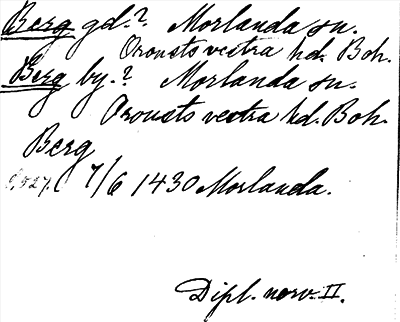 Berg gd.? Morlanda sn.
Orousts vestra hd. Boh.
Berg by.? Morlanda sn.
Orousts vestra hd. Boh.
Berg
7/6 1430 Morlanda.
Dipl. norv. II.